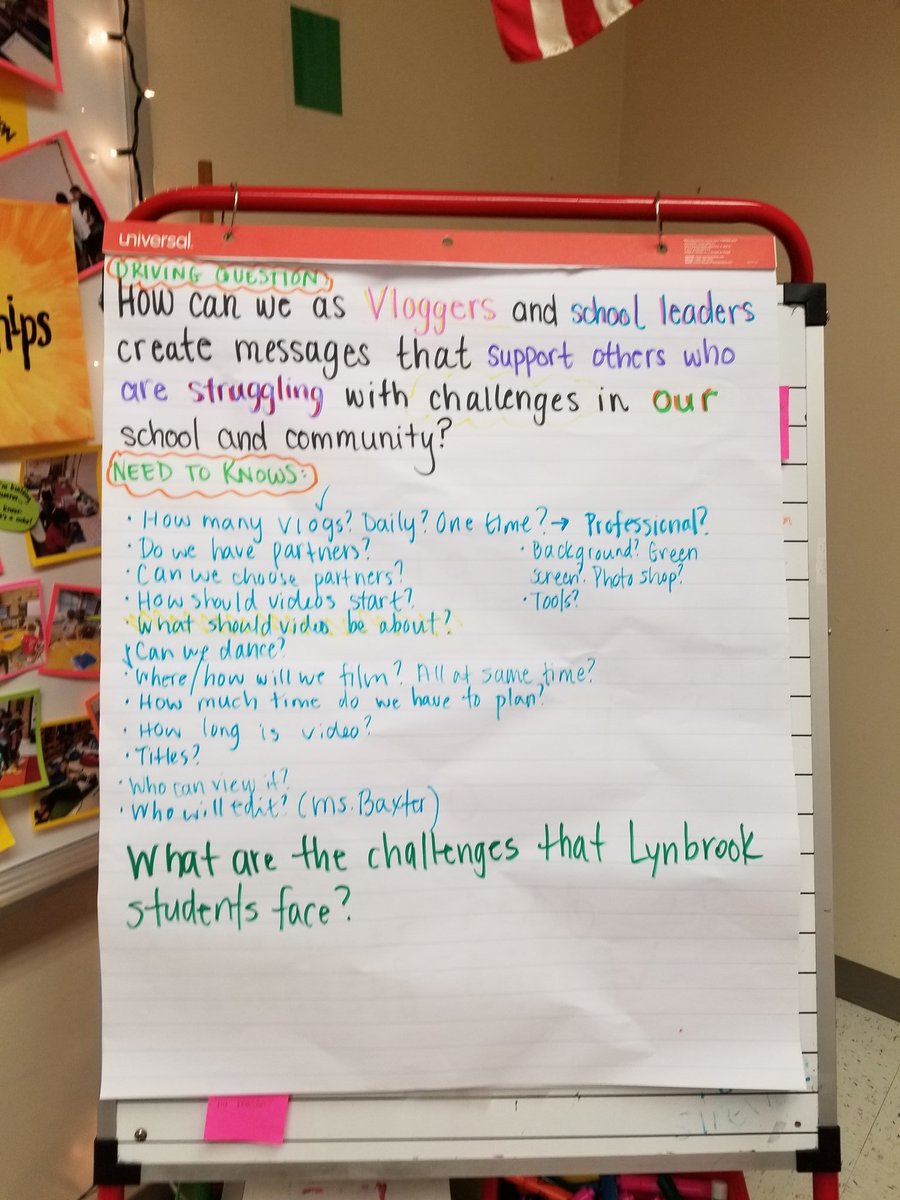 universal
DRIVING QUESTION:
How can we as Vloggers and school leaders
create messages that support others who
are struggling with challenges in our
school and community?
NEED TO KNOWS:
• How many vlogs? Daily? One time? → Professional?
• Do we have partners?
• Background? Green
• Can we choose partners?
screen? Photo shop?
• How should videos start?
• Tools?
• What should video be about?
Can we dance?
• Where/how will we film? All at same time?
• How much time do we have to plan?
• How long is video?
• Titles?
• Who can view it?
• Who will edit? (Ms. Baxter)
What are the challenges that Lynbrook
students face?